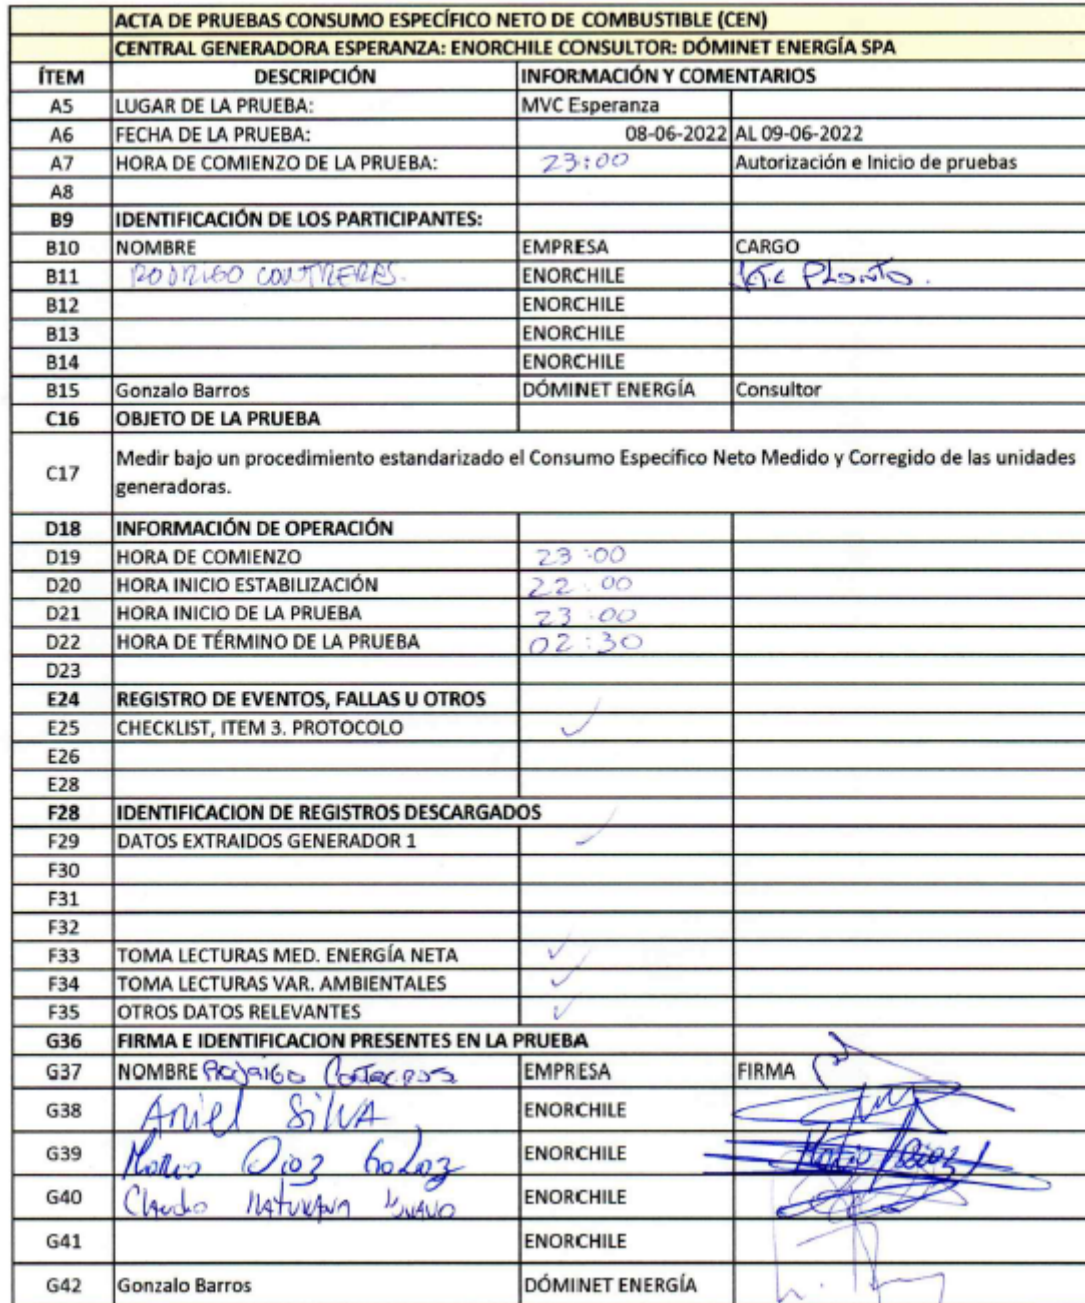 ACTA DE PRUEBAS CONSUMO ESPECÍFICO NETO DE COMBUSTIBLE (CEN)
CENTRAL GENERADORA ESPERANZA: ENORCHILE CONSULTOR: DÓMINET ENERGÍA SPA
ÍTEM DESCRIPCIÓN INFORMACIÓN Y COMENTARIOS
A5 LUGAR DE LA PRUEBA: MVC Esperanza
A6 FECHA DE LA PRUEBA: 08-06-2022 AL 09-06-2022
A7 HORA DE COMIENZO DE LA PRUEBA: 23:00 Autorización e Inicio de pruebas
A8
B9 IDENTIFICACIÓN DE LOS PARTICIPANTES:
B10 NOMBRE EMPRESA CARGO
B11 RODRIGO CONTRERAS. ENORCHILE
B12 ENORCHILE
B13 ENORCHILE
B14 ENORCHILE
B15 Gonzalo Barros DÓMINET ENERGÍA Consultor
C16 OBJETO DE LA PRUEBA
C17 Medir bajo un procedimiento estandarizado el Consumo Especifico Neto Medido y Corregido de las unidades
generadoras.
D18 INFORMACIÓN DE OPERACIÓN
D19 HORA DE COMIENZO 23:00
D20 HORA INICIO ESTABILIZACIÓN 22:00
D21 HORA INICIO DE LA PRUEBA 23:00
D22 HORA DE TÉRMINO DE LA PRUEBA 02:30
D23
E24 REGISTRO DE EVENTOS, FALLAS U OTROS
E25 CHECKLIST, ITEM 3. PROTOCOLO ✓
E26
E28
F28 IDENTIFICACION DE REGISTROS DESCARGADOS
F29 DATOS EXTRAIDOS GENERADOR 1 ✓
F30
F31
F32
F33 TOMA LECTURAS MED. ENERGÍA NETA ✓
F34 TOMA LECTURAS VAR. AMBIENTALES ✓
F35 OTROS DATOS RELEVANTES ✓
G36 FIRMA E IDENTIFICACION PRESENTES EN LA PRUEBA
G37 NOMBRE Rodrigo Contreras EMPRESA FIRMA
G38 Ariel Silva ENORCHILE
G39 ENORCHILE
G40 Claudio Maturana ENORCHILE
G41 ENORCHILE
G42 Gonzalo Barros DÓMINET ENERGÍA